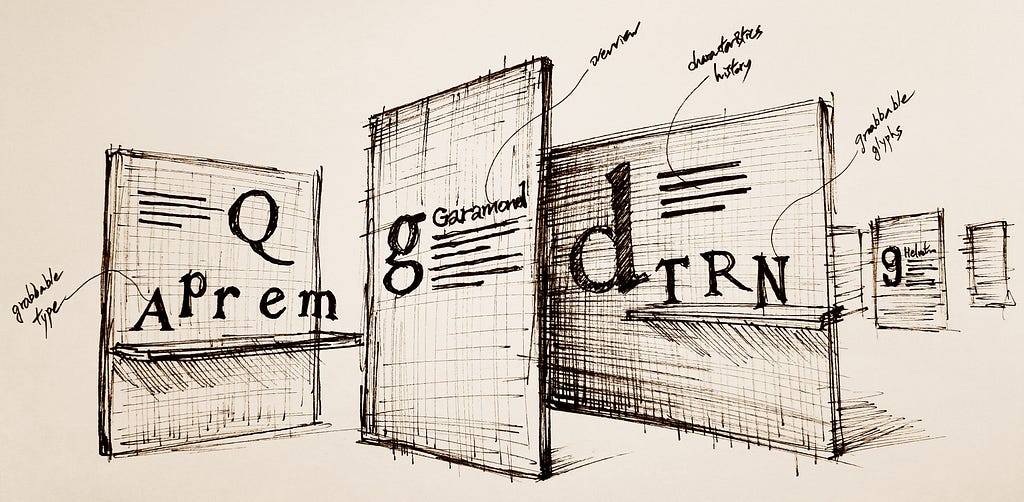 overview
characteristics
history
grabbable
glyphs
Q
Garamond
g
d
TRN
g
Helvetica
A P r e m
grabbable
type